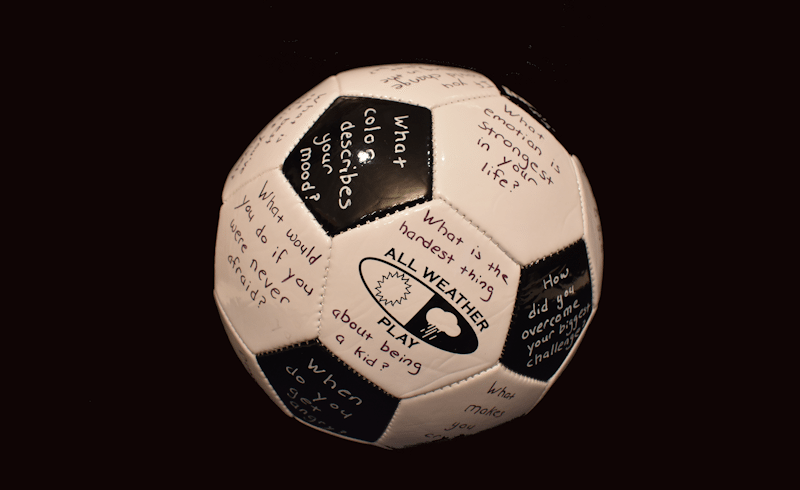 you change
What
color
describes
your
mood?
What
emotion is
strongest
in your
life?
What would
you do if you
were never
afraid?
What is the
hardest thing
ALL WEATHER
PLAY
about being
a kid?
How
did you
overcome
your biggest
challenge?
When
do you
get
angry?
What
makes
you